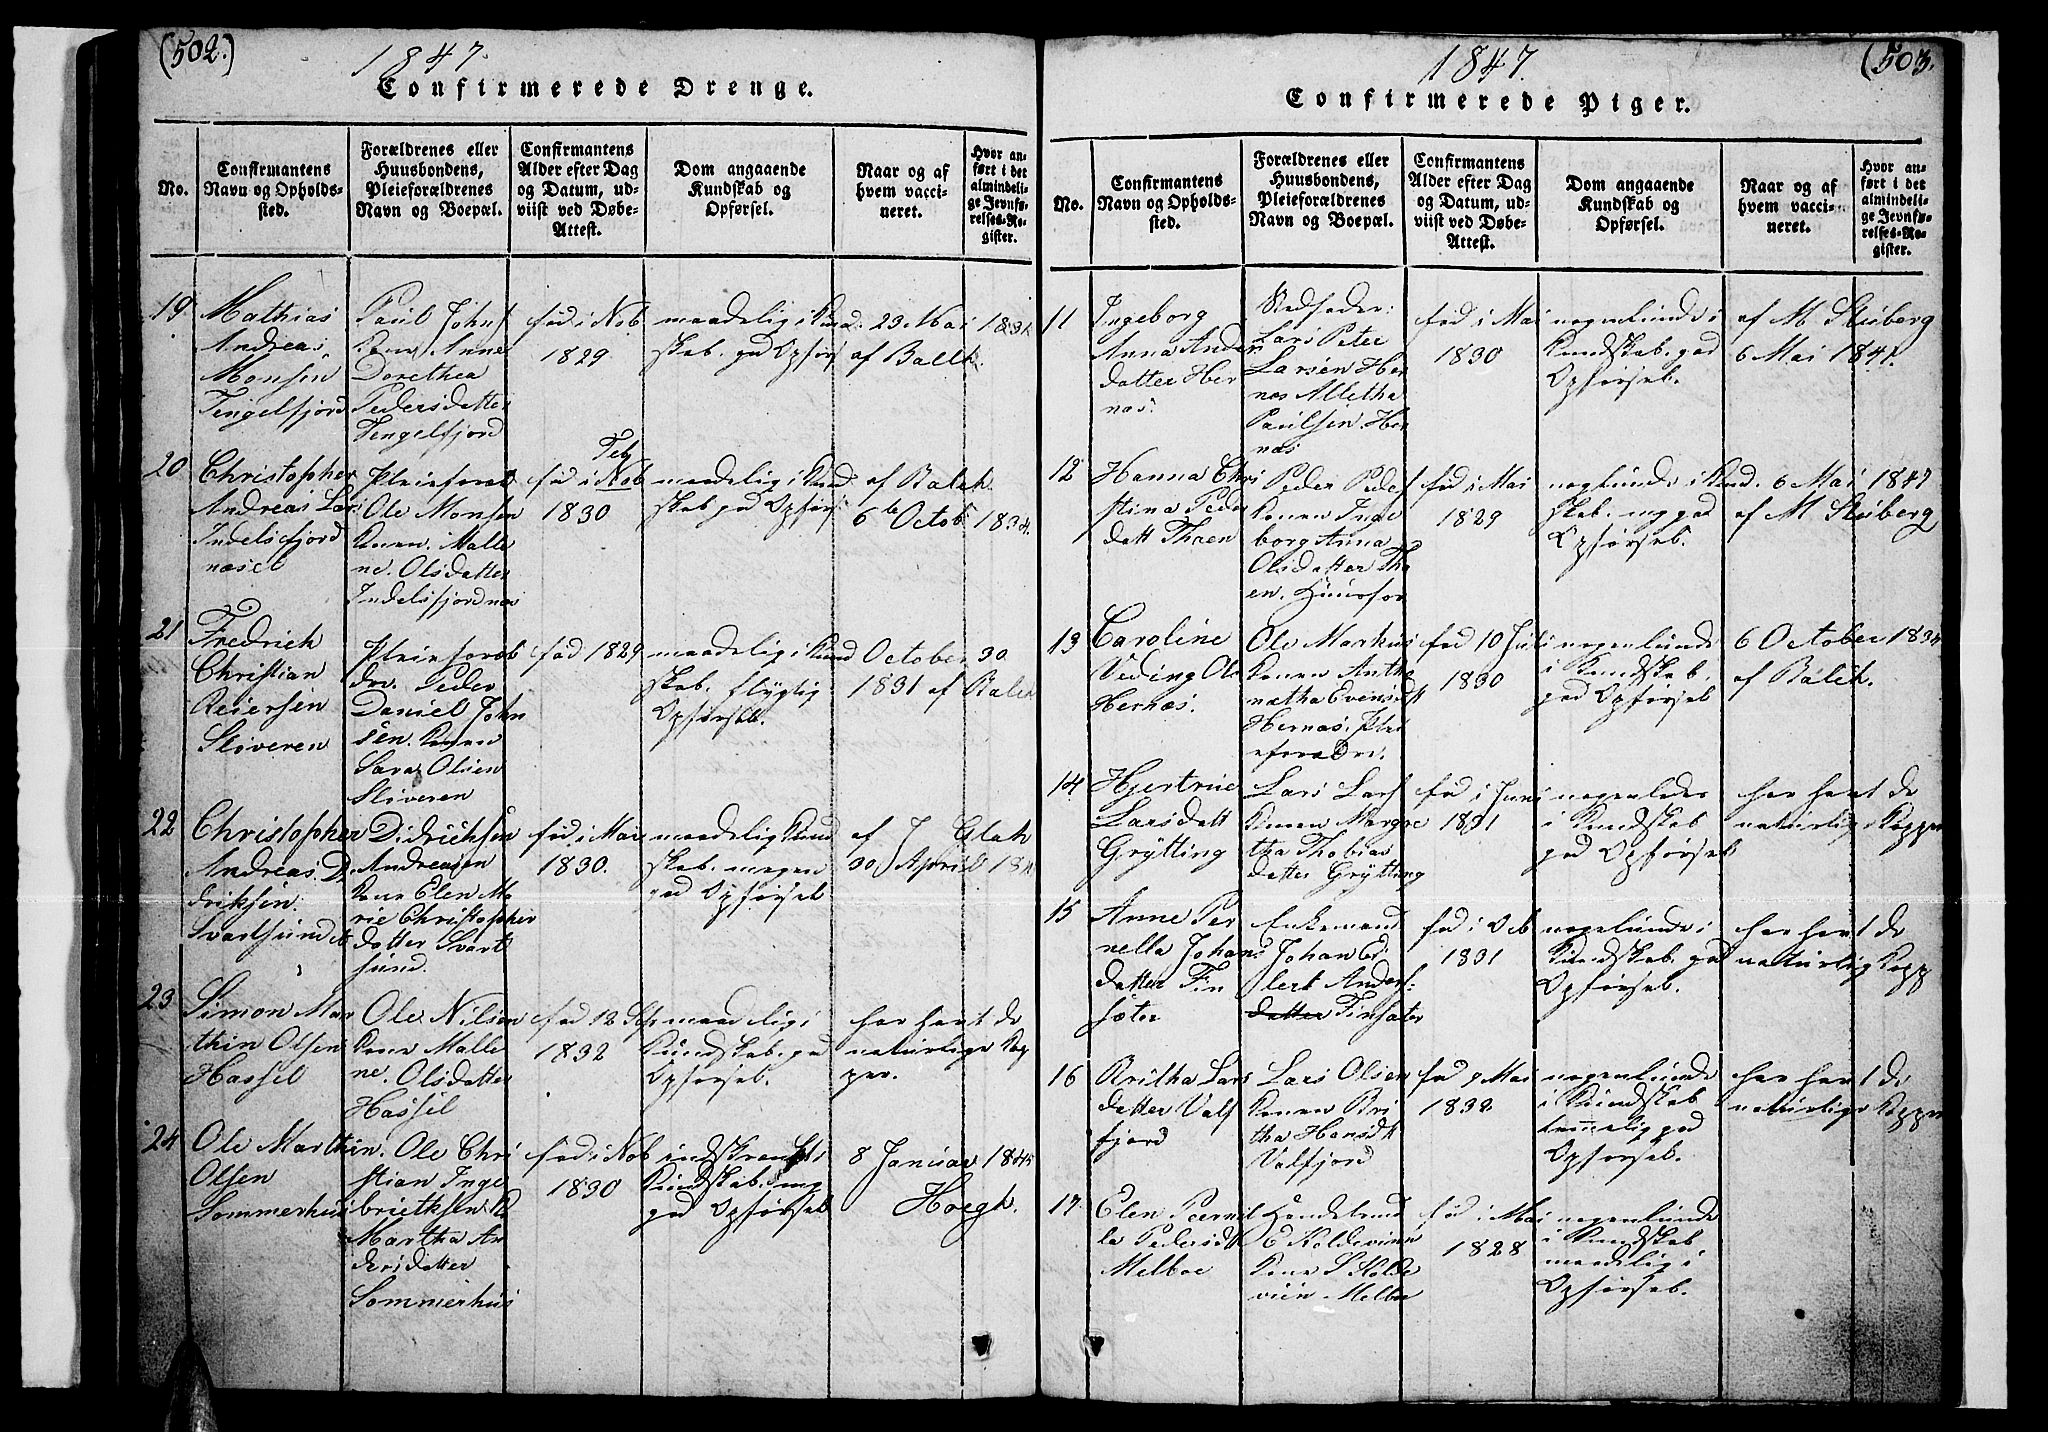 (502.)
1847.
Confirmerede Drenge.
No.
Confirmantens
Navn og Opholds-
sted.
Forældrenes eller
Huusbondens,
Pleieforældrenes
Navn og Boepæl.
Confirmantens
Alder efter Dag
og Datum, ud-
viist ved Døbe-
Attest.
Dom angaaende
Kundskab og
Opførsel.
Naar og af
hvem vacci-
neret.
Hvor an-
ført i det
almindeli-
ge Jevnfø-
relses-Re-
gister.
19.
Mathias
Andreas
Monsen
Tengelfjord
Paul Johns
Kone Anne
Dorethea
Pedersdatter
Tengelfjord
fød i Nob
1829
maadelig i Kund
skab. god Opførs
23 Mai 1831.
af Balk.
20
Christopher
Andreas Lars
Indelsfjord
næset
Pleieforæld
Ole Monsen
Konen. Malle
ne. Olsdatter
Indelsfjordnæs
Feb
fød i Nob
1830
maadelig i Kund
skab god Opførs
af Balch.
6te Octob. 1834.
21
Fredrich
Christian
Reiersen
Sløveren
Pleieforæl
dre. Peder
Daniel John
sen. Konen
Sara Olsen
Sløveren
fød 1829
maadelig i Kund
skab. flygtig
Opførsel.
October 30
1831 af Balch
22
Christopher
Andreas. Di
driksen.
Svartsundet
Didrichsen
Andreasen
Kone Elen Ma
rie Christopher
datter Svart
sund.
fød i Mai
1830.
maadelig Kund
skab. megen
god Opførsel
af J Glak
30 April
23
Simon Mar
thin Olsen
Hassel
Ole Nilsen
Kone Malle
ne. Olsdatter
Hassel
fød 12 Sep
1832
maadelig i
Kundskab. god
Opførsel.
har havt de
naturlige Kop
per.
24
Ole Marthin.
Olsen
Sommerhus
Ole Chri
stian Inge
brictsen K
Martha An
dersdatter
Sommerhus
fød i Nob
1830
indskrænket i
Kundskab. mg
god Opførsel
8 Januar 1845
Hoegh.
1847.
(503.
Confirmerede Piger.
No.
Confirmantens
Navn og Opholds-
sted.
Forældrenes eller
Huusbondens,
Pleieforældrenes
Navn og Boepæl.
Confirmantens
Alder efter Dag
og Datum, ud-
viist ved Døbe-
Attest.
Dom angaaende
Kundskab og
Opførsel.
Naar og af
hvem vacci-
neret.
Hvor an-
ført i det
almindeli-
ge Jevnfø-
relses-Re-
gister.
11
Ingeborg
Anna Anders
datter Her
næs.
Stedfader:
Lars Peter
Larsen Her
næs Alletha
Paulsen. Her
næs
fød i Mai
1830
nogenlunde i
Kundskab. god
Opførsel.
af M Stuberg
6 Mai 1841.
12
Hanna Chri
stina Peder
datt Thoen
Peder Peders
Konen Inge
borg Anna
Olsdatter Tho
en. Huusfor
fød i Mai
1829
noglunde i Kund.
skab. mg god
Opførsel.
6 Mai 1847
af M Stuberg
13
Caroline
Veding Ols
Hernæs.
Ole Markus
Konen Antho
netha Evensdt
Hernæs, Plei
eforældre.
fød 10 Juli
1830
nogenlunde
i Kundskab.
god Opførsel
6 October 1834
af Balch.
14
Hjertrue
Larsdatt
Grytting
Lars Lars
Konen Margre
tha Thobias
datter Grytting
fød i Juni
1831
nogenledes
i Kundskab
god Opførsel
har havt de
naturlige Kopper
15
Anne Per
nella Johans
datter Fin
sæter
Enkemand
Johan Ed
lert Anders-
datter Finsæter
fød i Oct
1831
nogelunde i
Kundskab. god
Opførsel.
har havt de
naturlig Kopp
16
Britha Lars
datter Valf
fjord
Lars Olsen
Konen Bri
tha Hansdt
Valfjord
fød 9 Mai
1832
nogenlunde
i Kundskab
temmelig god
Opførsel.
har havt de
naturlige Kopper
17
Elen Peernil
le Pedersdt
Melboe
Handelsmd
E Koldevinn
Kone S Kolde
vien Melboe
fød i Mai
1828
nogenlunde
i Kundskab
maadelig i
Opførsel.